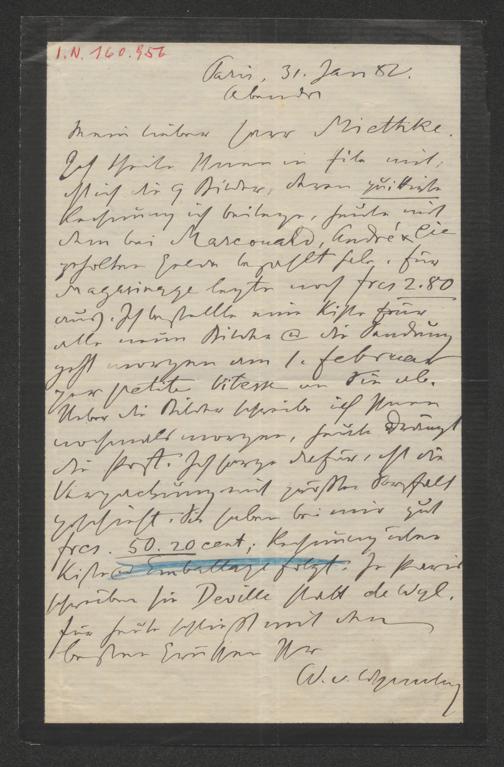 I.N. 160.956
Paris, 31. Jan 82.
Abends
Mein lieber Herr Miethke.
Ich theile Ihnen in Eile mit,
daß ich die 9 Bilder, deren quittirte
Rechnung ich beilege, heute mit
dem bei Marcouard, André & Cie
geholten Gelde bezahlt habe. Für
Magasinage legte noch frcs 2.80
aus. Ich bestelle eine Kiste für
alle neun Bilder & die Sendung
geht morgen am 1. Februar
per petite vitesse an Sie ab.
Ueber die Bilder schreibe ich Ihnen
nochmals morgen, heute drängt
die Post. Ich sorge dafür, daß die
Verpackung mit größter Sorgfalt
geschieht. Sie haben bei mir gut
frcs. 50.20 cent; Rechnung über
Kiste & Emballage folgt. In Paris
schreiben sie Deville statt de Wyl.
Für heute schließt mit den
besten Grüßen Ihr
W. v.